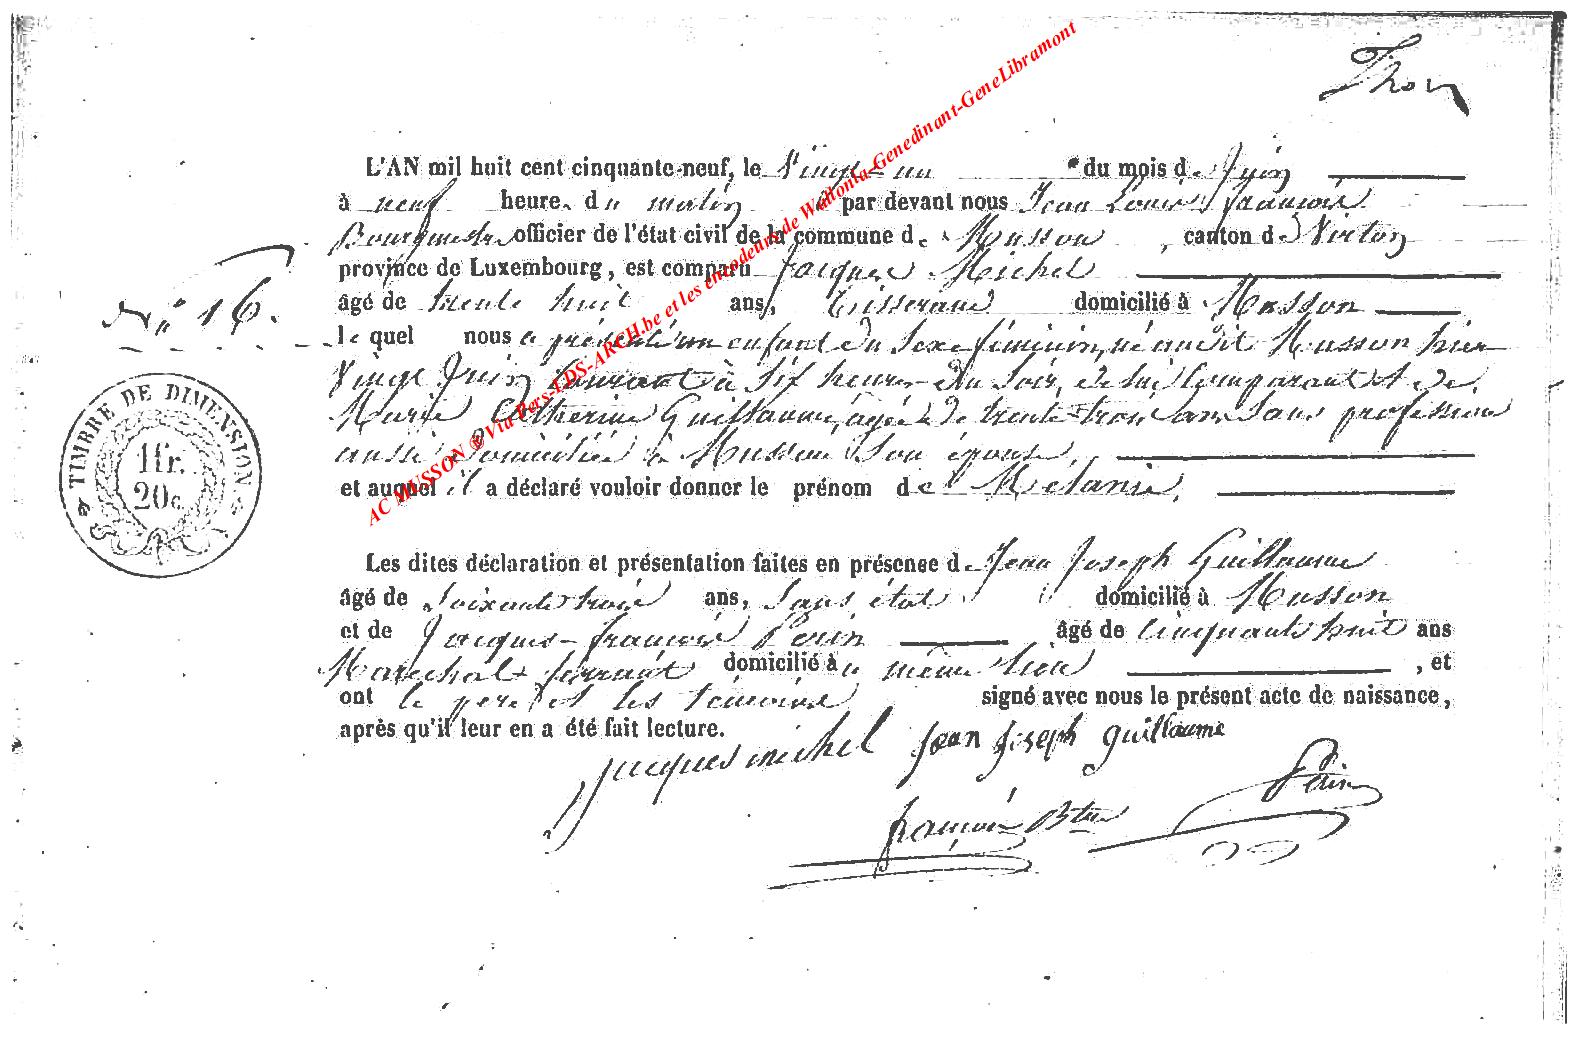 Thon
L'AN mil huit cent cinquante-neuf, le Vingt-un du mois de Juin
à neuf heures du matin par devant nous Jean Louis François
Bourgmestre officier de l'état civil de la commune de Musson, canton de Virton
province de Luxembourg, est comparu Jacques Michel
âgé de trente huit ans, tisserand domicilié à Musson
N° 16.
le quel nous a présenté un enfant du sexe féminin, né audit Musson hier
Vingt Juin courant à six heures du soir, de lui comparant et de
Marie Catherine Guillaume, agée de trente-trois ans, sans profession
aussi domiciliée à Musson son épouse,
et auquel il a déclaré vouloir donner le prénom de Melanie.
TIMBRE DE DIMENSION
1fr.
20c.
Les dites déclaration et présentation faites en présence de Jean Joseph Guillaume
âgé de soixante trois ans, sans état domicilié à Musson
et de Jacques-françois Perin âgé de cinquante huit ans
Marechal ferrant domicilié à même lieu, et
ont le pere et les témoins signé avec nous le présent acte de naissance,
après qu'il leur en a été fait lecture.
jacques michel jean joseph guillaume
Perin
françois Btre
AC MUSSON @ Via Pers-LDS-ARCH.be et les encodeurs de Wallonia-Genedinant-GeneLibramont